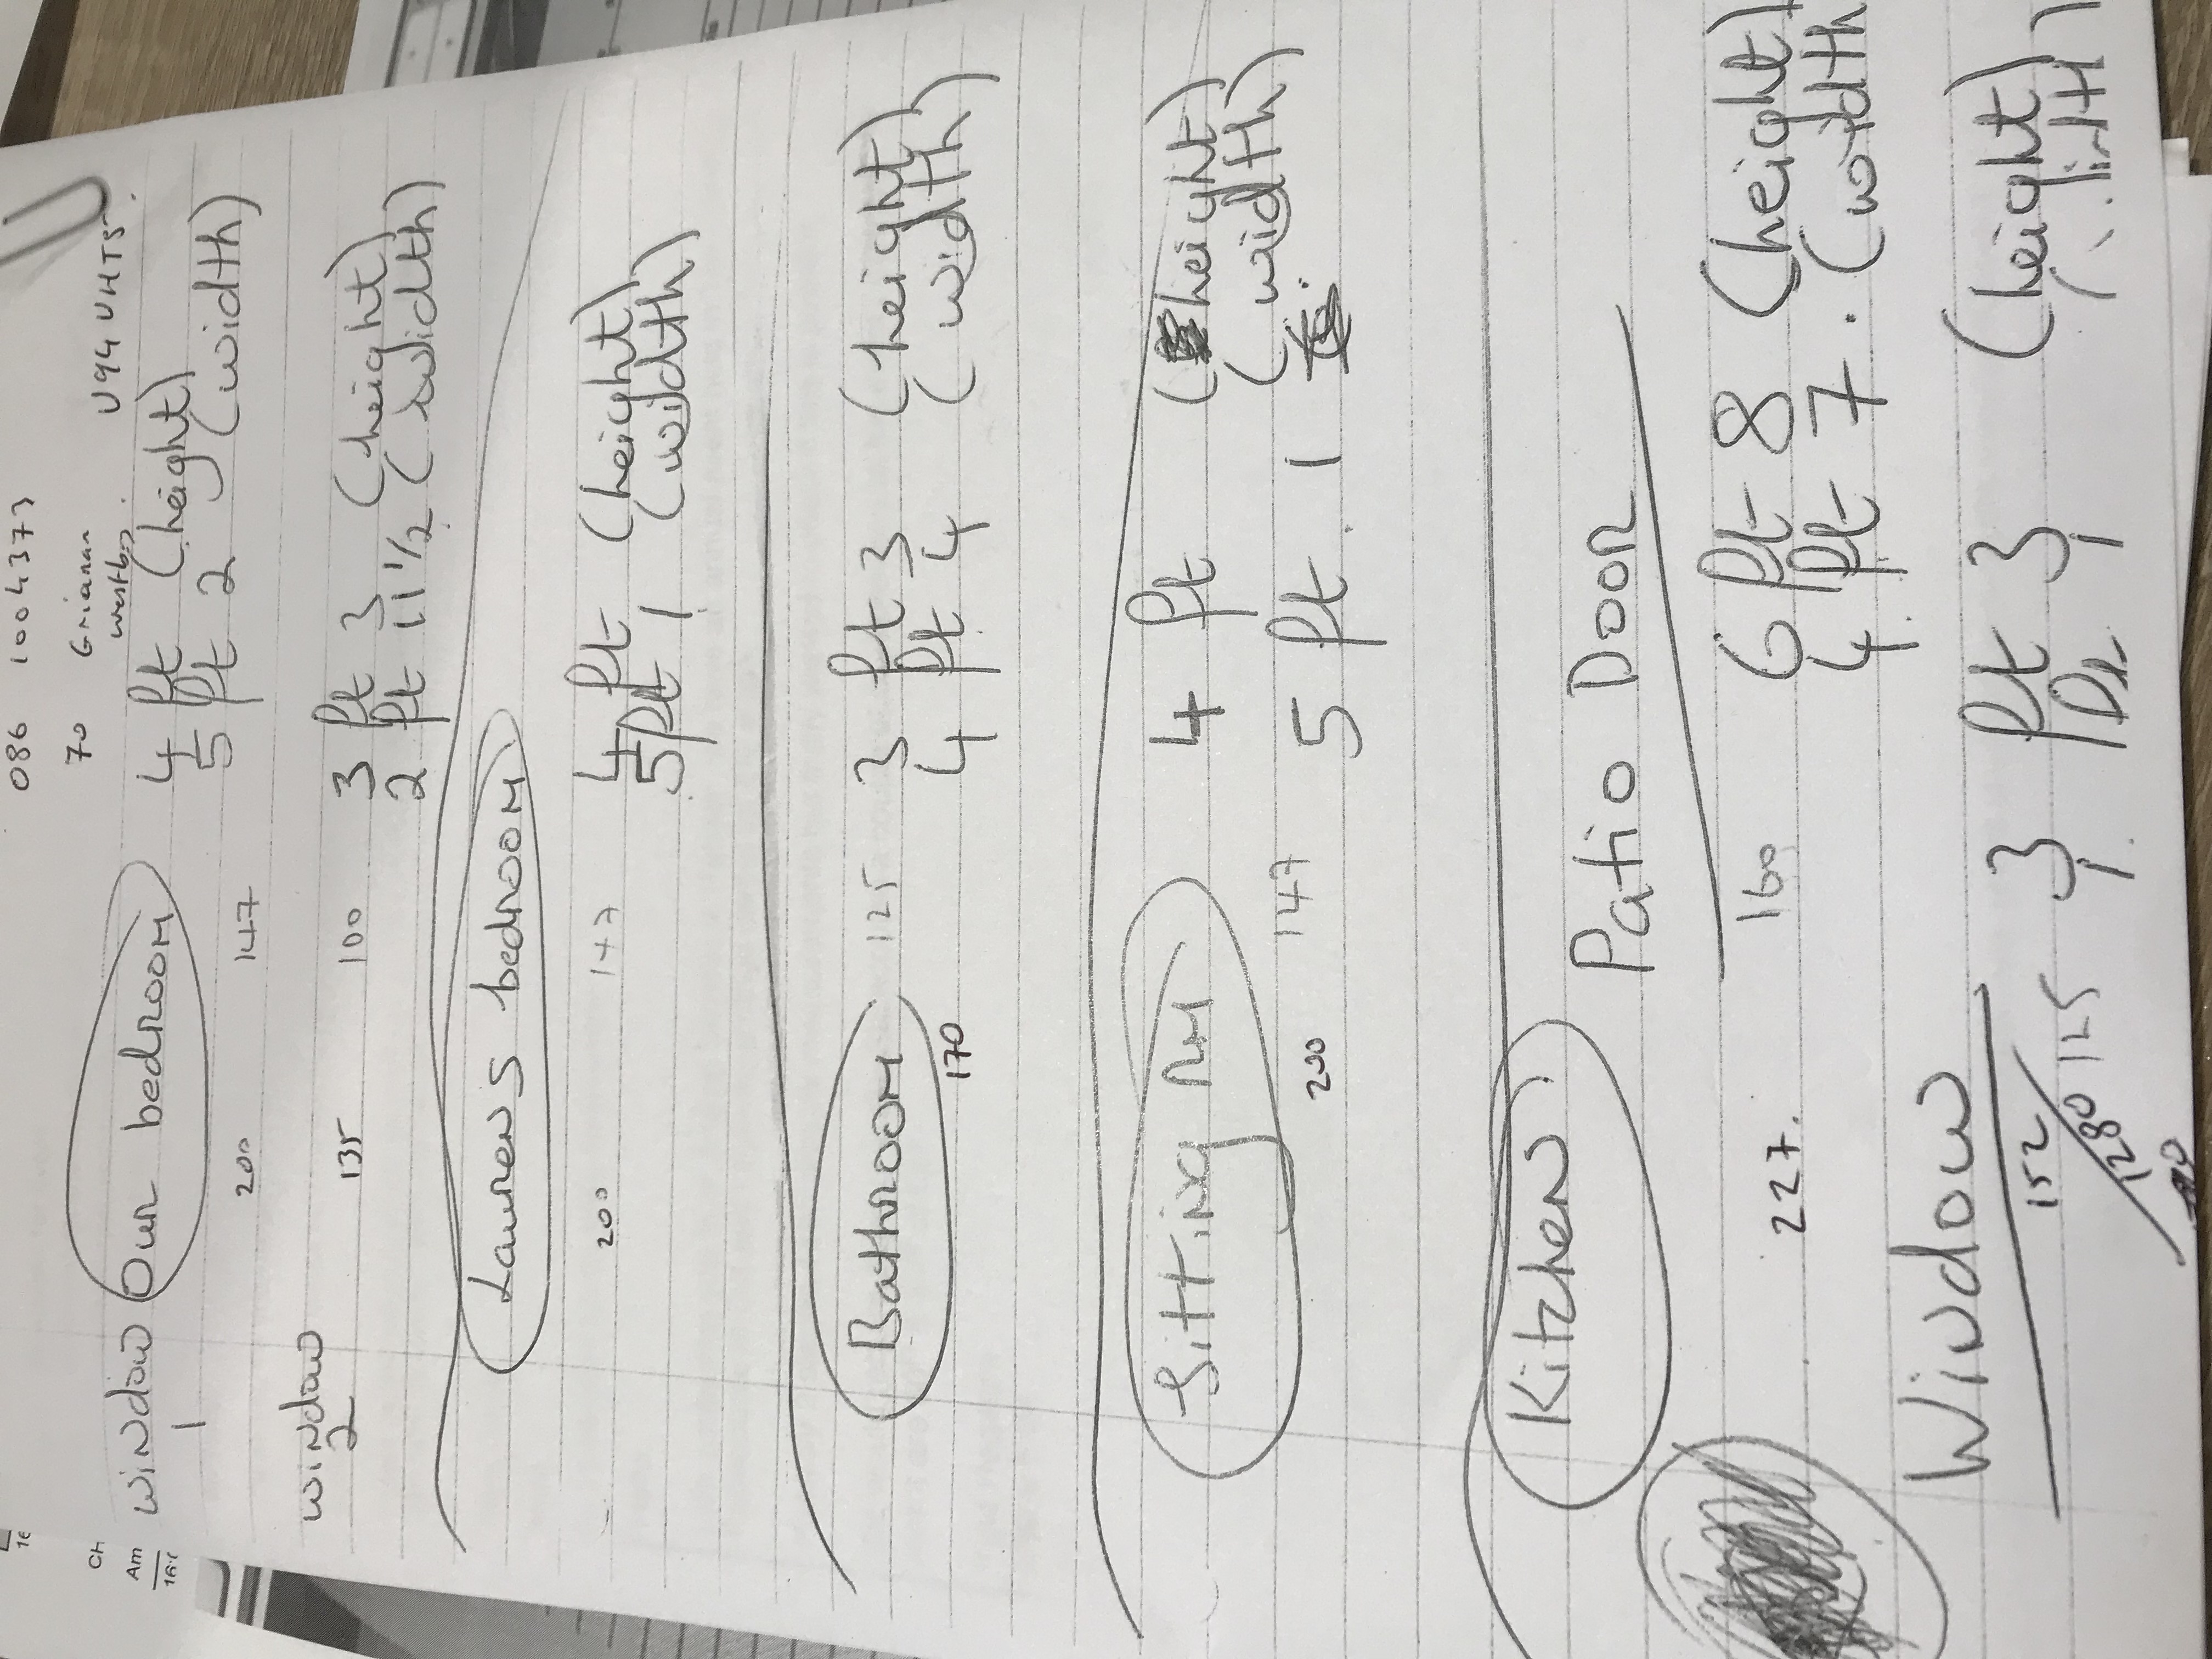 086 1004373
70 Grianan V94 VHT5.
Window Our bedroom 4 ft (height)
1 5 ft 2 (width)
200 147
Window 3 ft 3 (height)
2 2 ft 11 1/2 (width)
135 100
Laurens bedroom
4 ft (height)
200 147 5 ft 1 (width)
Bathroom 125 3 ft 3 (height)
170 4 ft 4 (width)
Sitting rM 4 ft (height)
200 147 5 ft. 1 (width)
Kitchen Patio Door
227. 160 6 ft 8 (height)
4 ft 7. (width
Window
152 3 ft 3 (height)
180 125
CH
Am